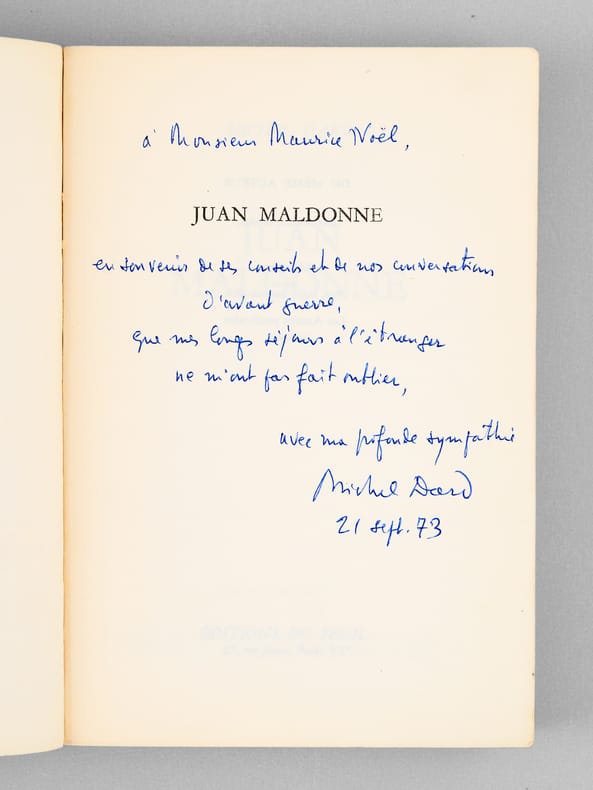 à Monsieur Maurice Noël,
JUAN MALDONNE
en souvenir de ses conseils et de nos conversations
d'avant guerre,
que mes longs séjours à l'étranger
ne m'ont pas fait oublier,
avec ma profonde sympathie
Michel Dard
21 sept. 73